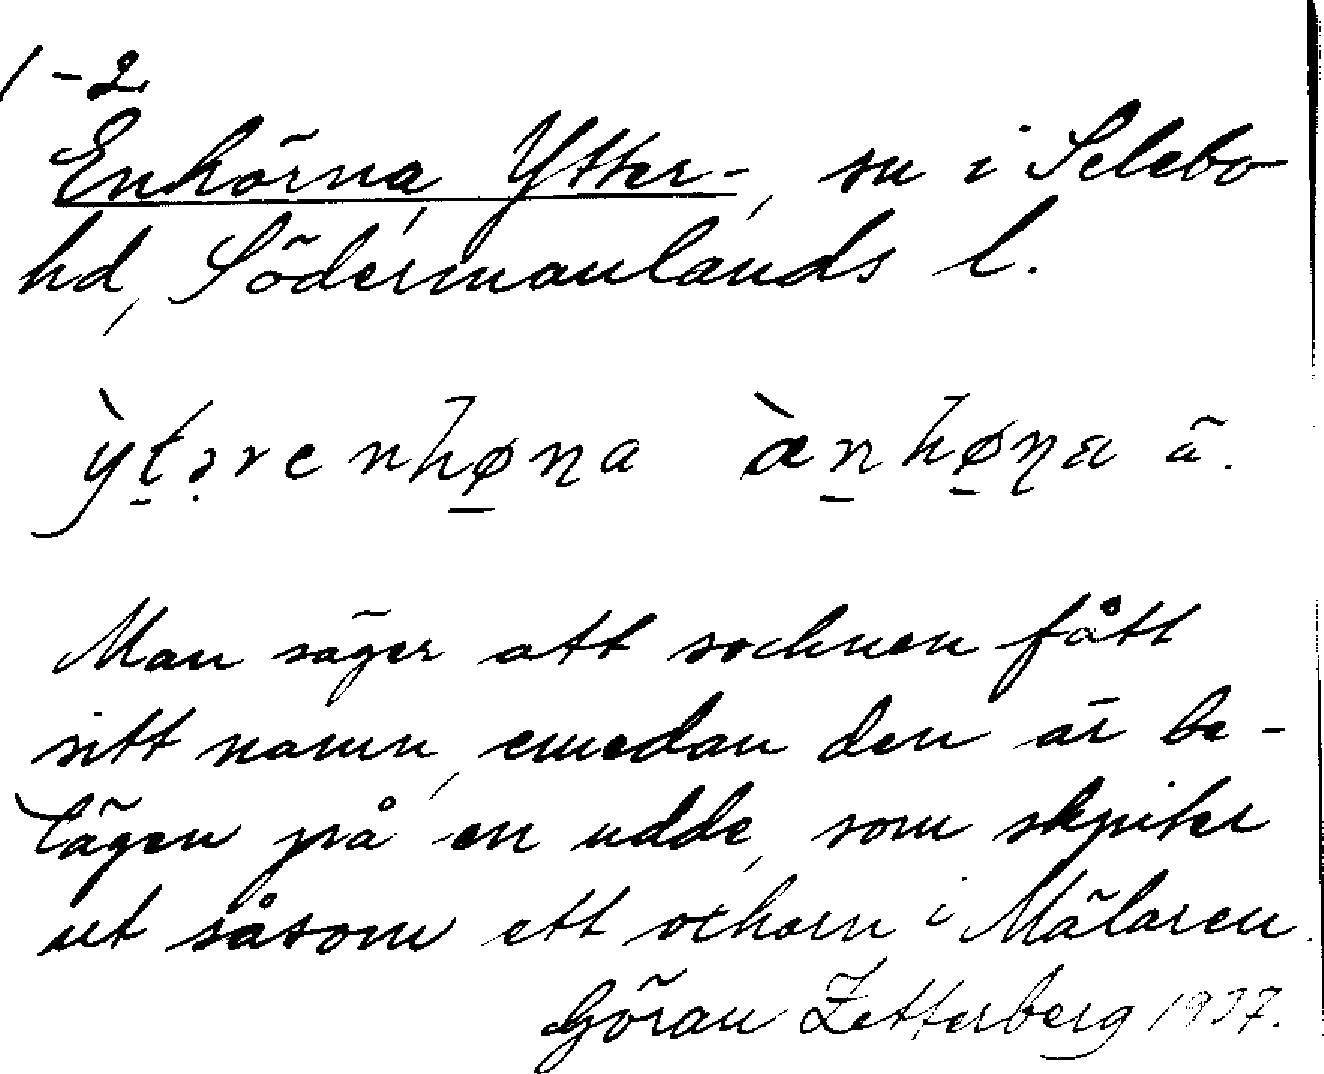 1-2
Enhörna, Ytter-, sn i Selebo
hd, Södermanlands l.
ỳt̠ə̣renhø̠ɳa àn̠hø̠ɳa ä.
Man säger att socknen fått
sitt namn, emedan den är be-
lägen på en udde, som skjuter
ut såsom ett oxhorn i Mälaren.
Göran Zetterberg 1937.